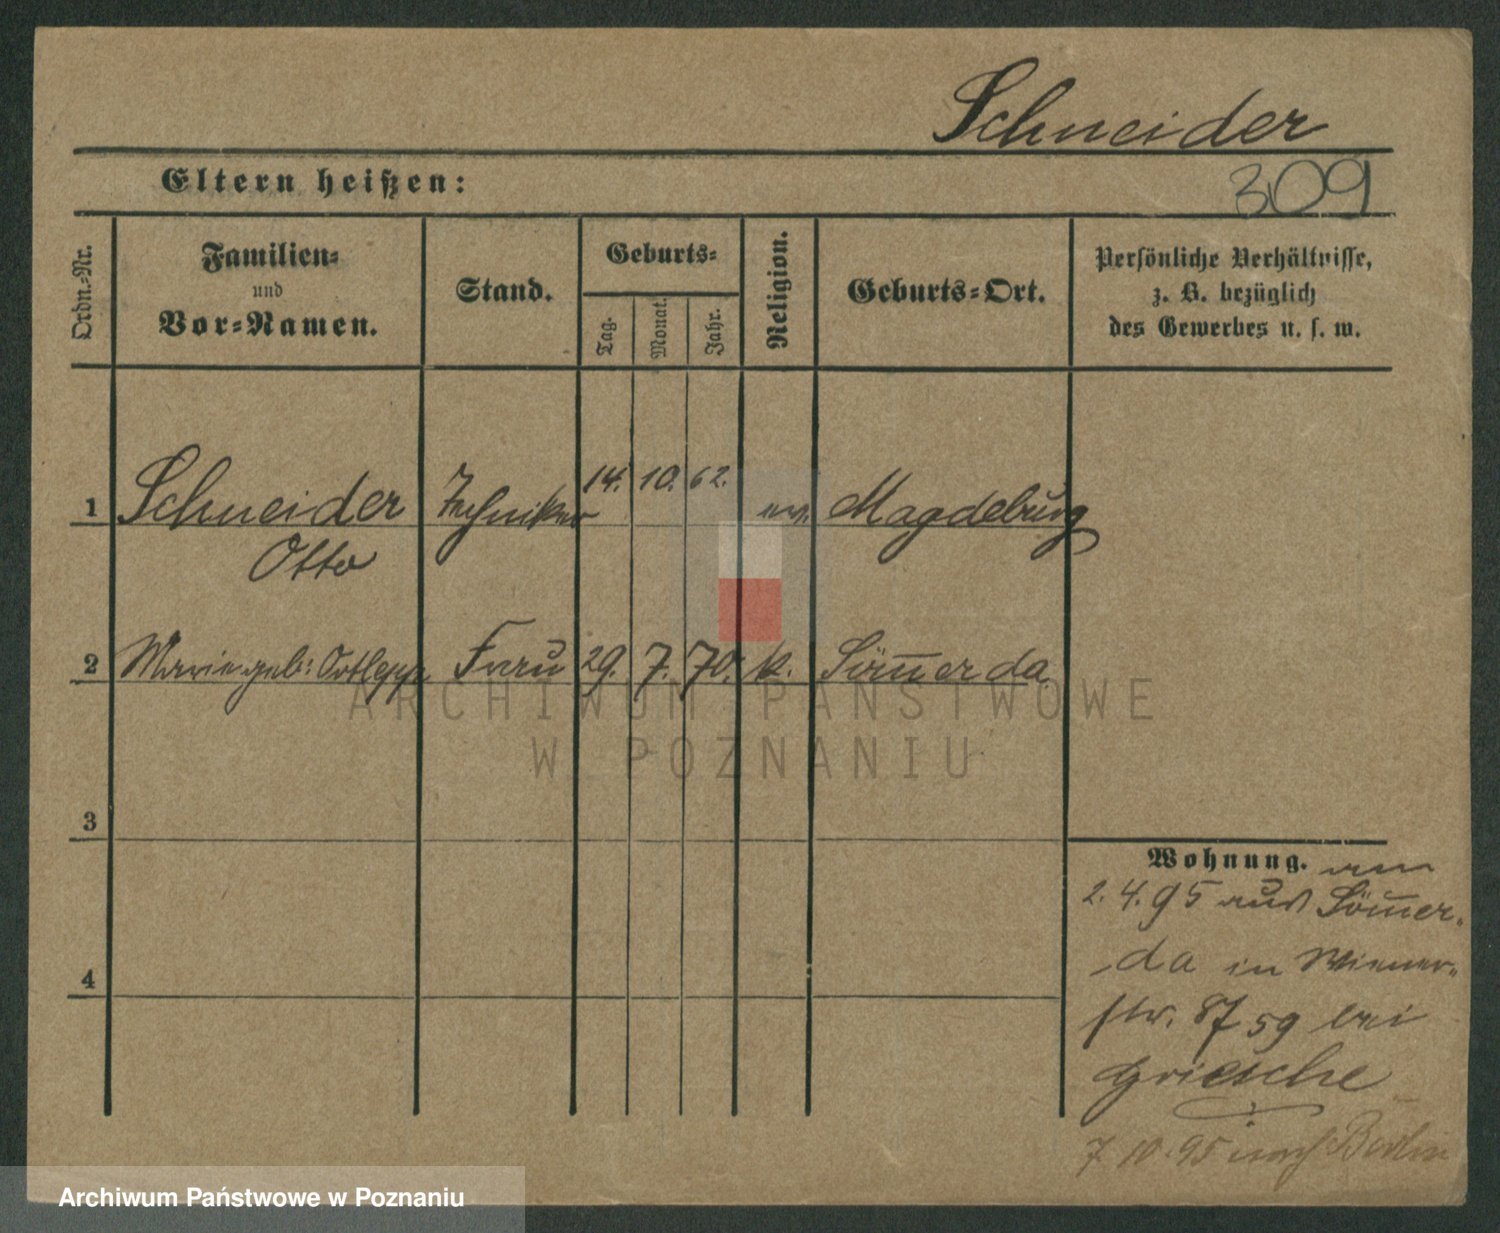 Schneider
309
Eltern heißen:
Ordn.-Nr.
Familien-
und
Vor-Namen.
Stand.
Geburts-
Tag.
Monat.
Jahr.
Religion.
Geburts-Ort.
Persönliche Verhältnisse,
z. B. bezüglich
des Gewerbes u. s. w.
1 Schneider Techniker 14. 10. 62. ev. Magdeburg
Otto
2 Marie geb: Ortlepp Frau 29. 7. 70. k. Söm̅erda
3
4
Wohnung. am
2.4.95 aus Söm̅er-
da in Wiener-
str. 57 59 bei
Griesche
7 10.95 nach Berlin
ARCHIWUM PAŃSTWOWE
W POZNANIU
Archiwum Państwowe w Poznaniu